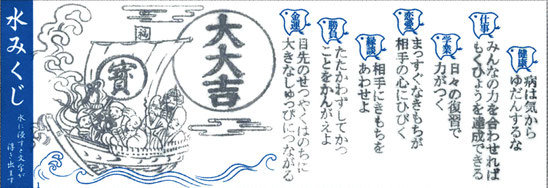 健康
病は気から
ゆだんするな
仕事
みんなの力を合わせれば
もくひょうを達成できる
学業
日々の復習で
力がつく
恋愛
まっすぐなきもちが
相手の心にひびく
縁談
相手にきもちを
あわせよ
勝負
たたかわずしてかつ
ことをかんがえよ
金運
目先のせつやくはのちに
大きなしゅっぴにつながる
大大吉
福
寶
水みくじ
水に浸すと文字が
浮き出ます